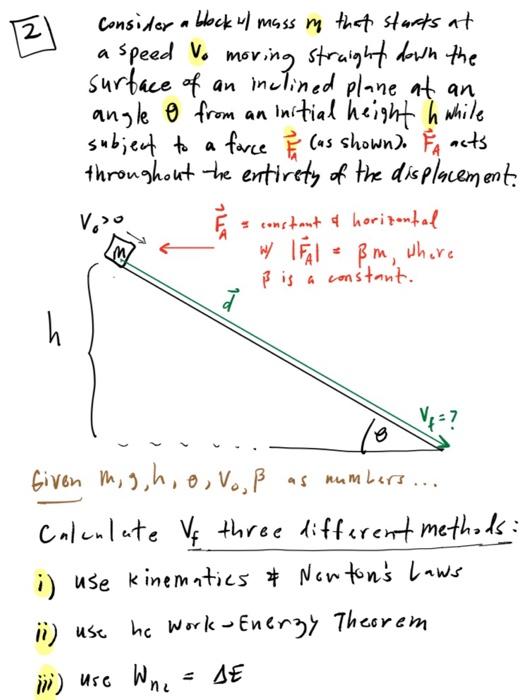 2
Consider a block w/ mass m that starts at
a speed V₀ moving straight down the
surface of an inclined plane at an
angle θ from an initial height h while
subject to a force F⃗_A (as shown). F⃗_A acts
throughout the entirety of the displacement.
V₀>0
F⃗_A = constant & horizontal
w/ |F⃗_A| = βm, where
β is a constant.
m
d⃗
h
V_f=?
θ
Given m, g, h, θ, V₀, β as numbers...
Calculate V_f three different methods:
i) use kinematics & Newton's Laws
ii) use he Work-Energy Theorem
iii) use W_nc = ΔE